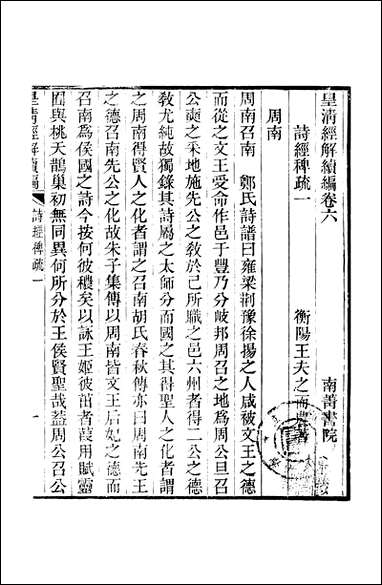 皇清經解續編卷六
南菁書院
詩經稗疏一
衡陽王夫之而農著
周南
周南召南 鄭氏詩譜曰雍梁荆豫徐揚之人咸被文王之德
而從之文王受命作邑于豐乃分岐邦周召之地爲周公旦召
公奭之采地施先公之敎於己所職之邑六州者得二公之德
敎尤純故獨錄其詩屬之太師分而國之其得聖人之化者謂
之周南得賢人之化者謂之召南胡氏春秋傳亦曰周南先王
之德召南先公之化故朱子集傳以周南皆文王后妃之德而
召南爲侯國之詩今按何彼穠矣以詠王姬彼茁者葭用賦靈
囿與桃夭鵲巢初無同異何所分於王侯賢聖哉蓋周公召公
皇清經解續編
詩經稗疏一
一